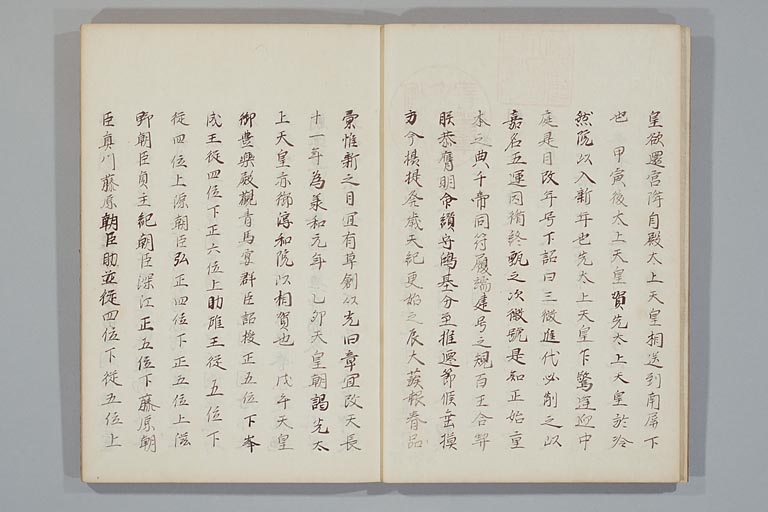 皇欲還宮降自殿太上天皇相送到南屏下
也 甲寅後太上天皇賀先太上天皇於冷
然院以入新年也先太上天皇下鷩逢迎中
庭是日改年号下詔曰三微進代必制之以
嘉名五運因循終甄之次徽號是知正始重
本之典千帝同符履端建号之規百王合契
朕恭膺明命纉守鴻基分至推遷節候岳摸
方今揖提發歳天紀更始之辰大蔟報春品
彙惟新之日宜有草創以光旧章宜改天長
十一年為羕和元年 乙卯天皇朝謁先太
上天皇亦御淳和院以相賀也 戊午天皇
御豊樂殿觀青馬宴群臣詔授正五位下峯
成王従四位下正六位上助雎王従五位下
従四位上源朝臣弘正四位下正五位上滋
野朝臣貞主紀朝臣深江正五位下藤原朝
臣真川藤原朝臣助並従四位下従五位上